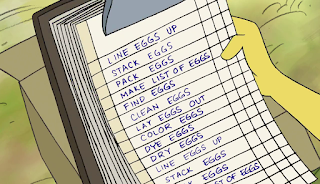 LINE EGGS UP
STACK EGGS
PACK EGGS
MAKE LIST OF EGGS
FIND EGGS
CLEAN EGGS
LAY EGGS OUT
COLOR EGGS
DYE EGGS
DRY EGGS
LINE EGGS UP
STACK EGGS
PACK EGGS
LIST OF EGGS